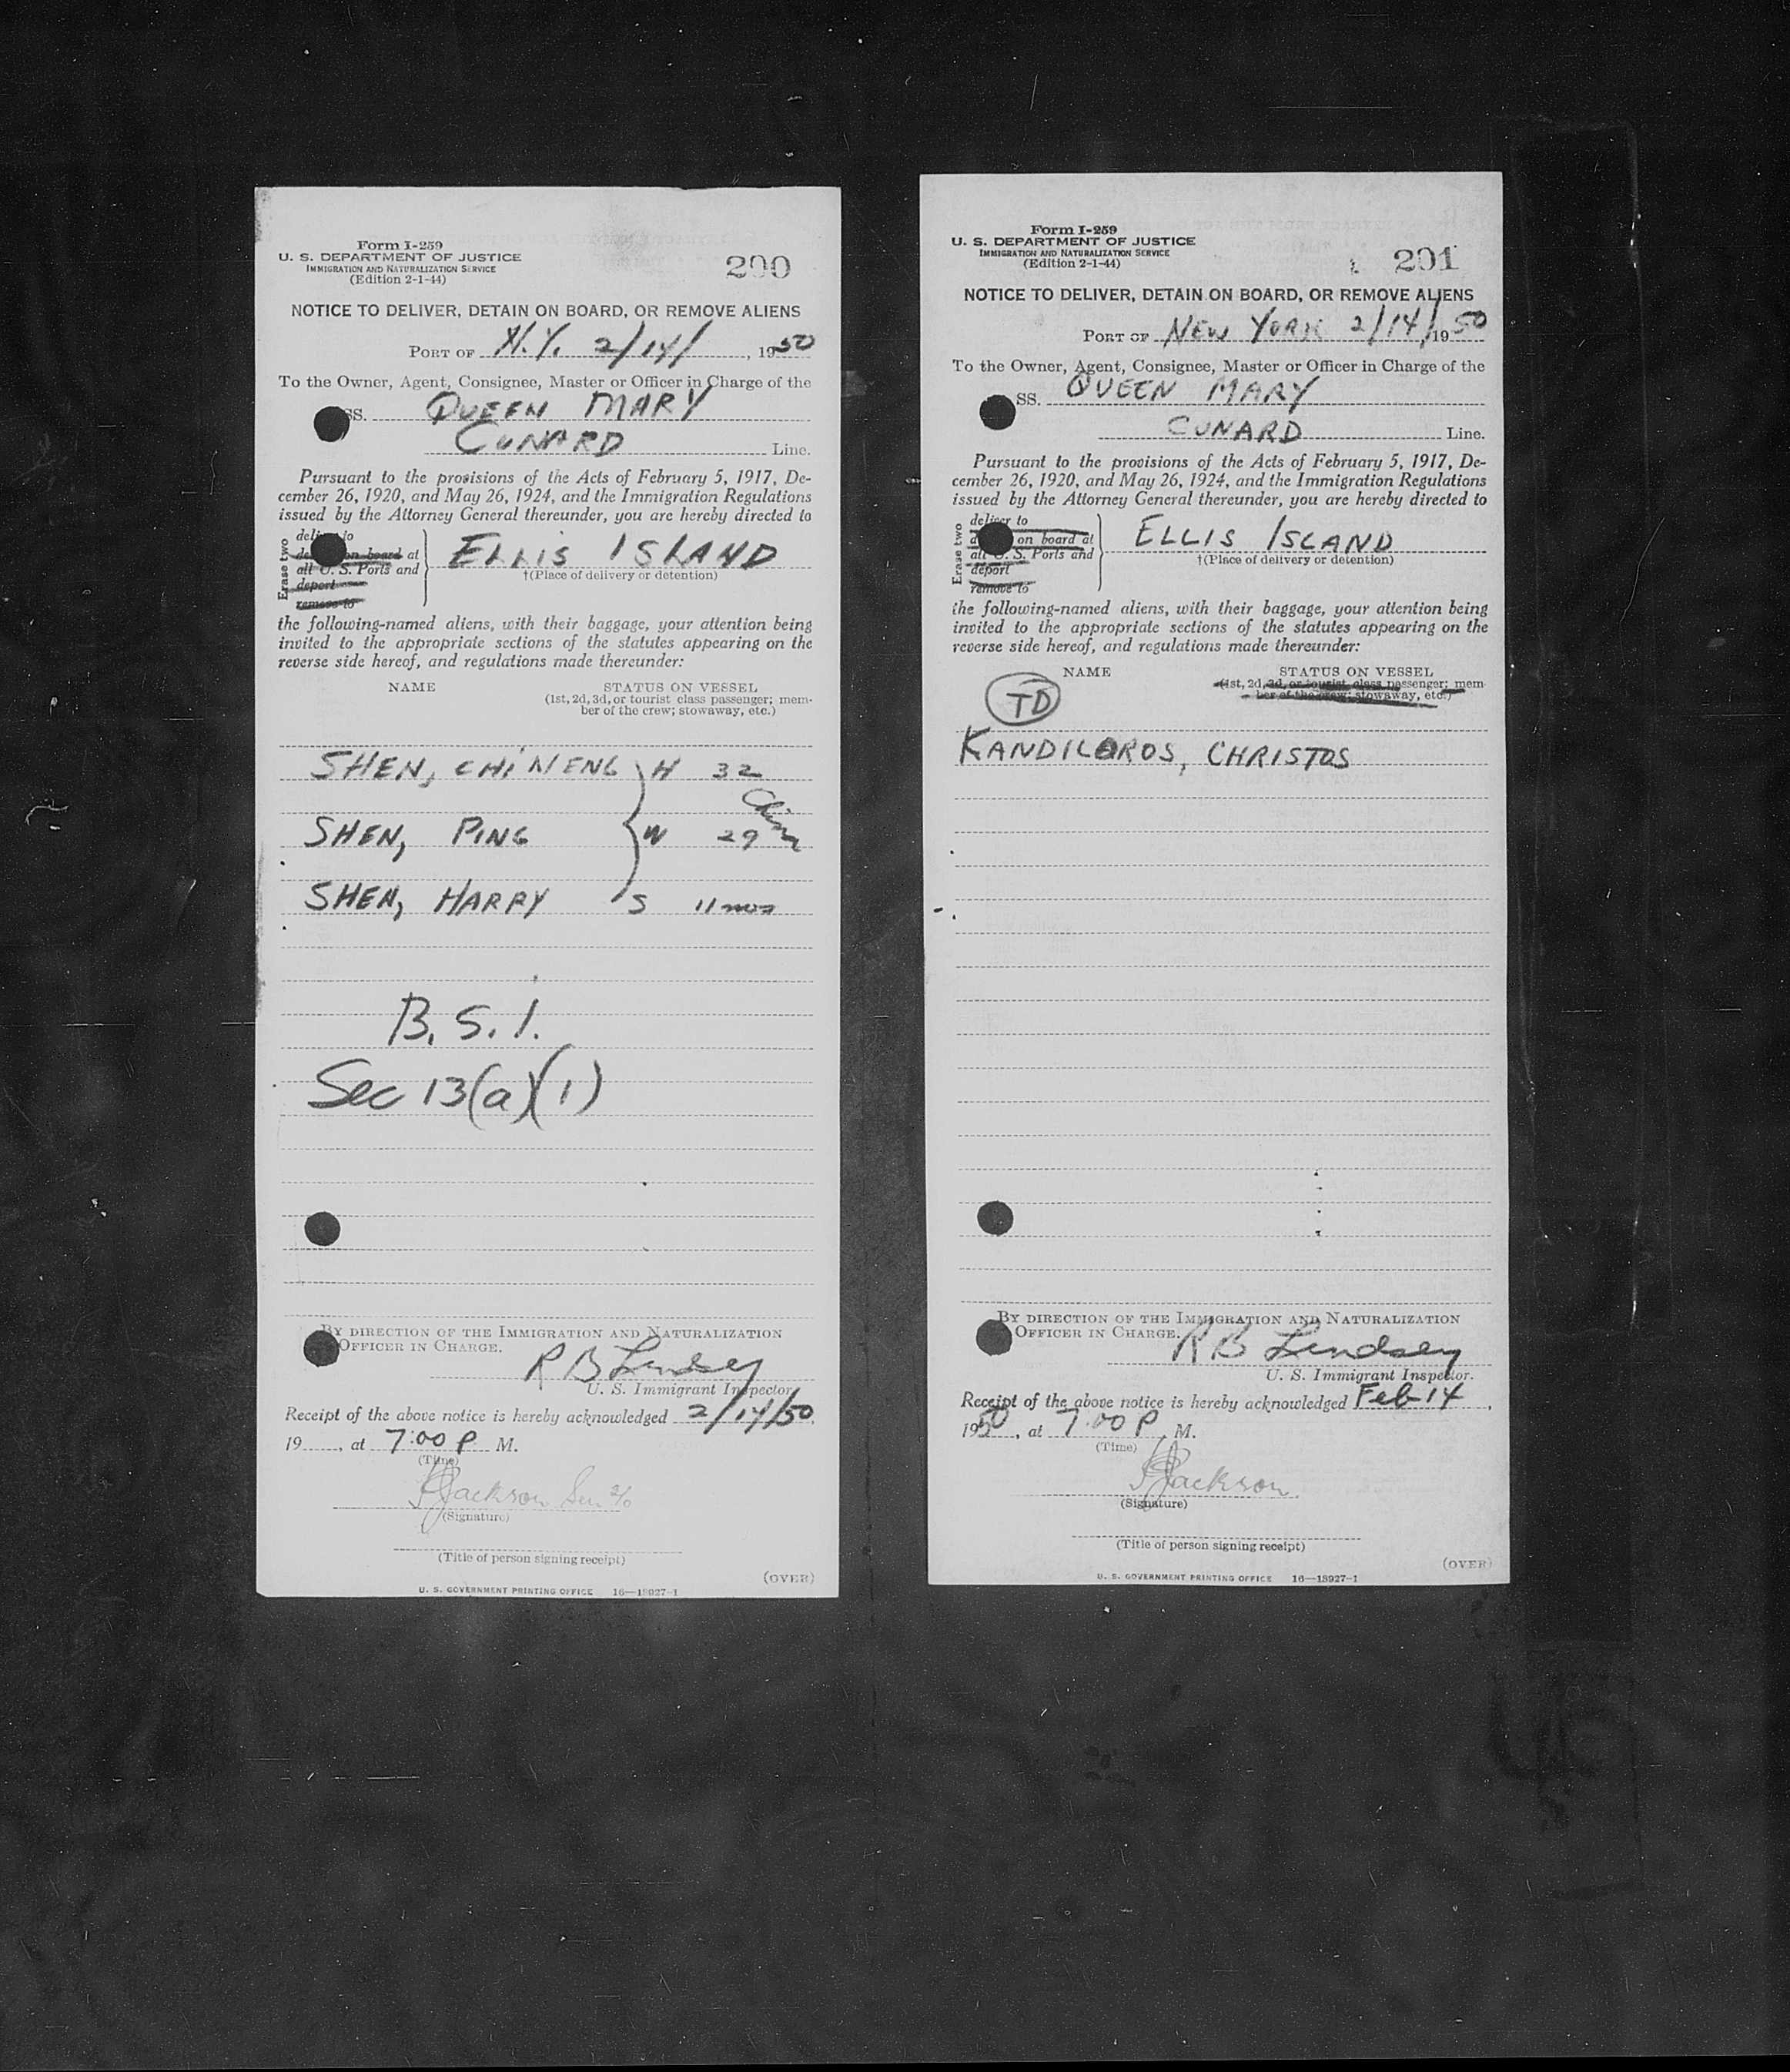 Form I-259
U. S. DEPARTMENT OF JUSTICE
IMMIGRATION AND NATURALIZATION SERVICE
(Edition 2-1-44)
290
NOTICE TO DELIVER, DETAIN ON BOARD, OR REMOVE ALIENS
PORT OF N.Y. 2/14/, 1950
To the Owner, Agent, Consignee, Master or Officer in Charge of the
SS. QUEEN MARY
CUNARD Line.
Pursuant to the provisions of the Acts of February 5, 1917, De-
cember 26, 1920, and May 26, 1924, and the Immigration Regulations
issued by the Attorney General thereunder, you are hereby directed to
Erase two
deliver to
on board at
all U. S. Ports and
deport
remove to
ELLIS ISLAND
†(Place of delivery or detention)
the following-named aliens, with their baggage, your attention being
invited to the appropriate sections of the statutes appearing on the
reverse side hereof, and regulations made thereunder:
NAME STATUS ON VESSEL
(1st, 2d, 3d, or tourist class passenger; mem-
ber of the crew; stowaway, etc.)
SHEN, CHI NENG H 32
China
SHEN, PING W 29
SHEN, HARRY S 11 mos
B.S.I.
Sec 13(a)(1)
BY DIRECTION OF THE IMMIGRATION AND NATURALIZATION
OFFICER IN CHARGE.
R B Lindsey
U. S. Immigrant Inspector.
Receipt of the above notice is hereby acknowledged 2/14/50,
19, at 7:00 P M.
(Time)
Jackson
(Signature)
(Title of person signing receipt)
(OVER)
U. S. GOVERNMENT PRINTING OFFICE 16—18927-1
Form I-259
U. S. DEPARTMENT OF JUSTICE
IMMIGRATION AND NATURALIZATION SERVICE
(Edition 2-1-44)
291
NOTICE TO DELIVER, DETAIN ON BOARD, OR REMOVE ALIENS
PORT OF NEW YORK 2/14/, 1950
To the Owner, Agent, Consignee, Master or Officer in Charge of the
SS. QUEEN MARY
CUNARD Line.
Pursuant to the provisions of the Acts of February 5, 1917, De-
cember 26, 1920, and May 26, 1924, and the Immigration Regulations
issued by the Attorney General thereunder, you are hereby directed to
Erase two
deliver to
on board at
all U. S. Ports and
deport
remove to
ELLIS ISLAND
†(Place of delivery or detention)
the following-named aliens, with their baggage, your attention being
invited to the appropriate sections of the statutes appearing on the
reverse side hereof, and regulations made thereunder:
NAME STATUS ON VESSEL
(1st, 2d, 3d, or tourist class passenger; mem-
ber of the crew; stowaway, etc.)
TD
KANDILAROS, CHRISTOS
BY DIRECTION OF THE IMMIGRATION AND NATURALIZATION
OFFICER IN CHARGE.
R B Lindsey
U. S. Immigrant Inspector.
Receipt of the above notice is hereby acknowledged Feb 14,
1950, at 7:00 P M.
(Time)
Jackson
(Signature)
(Title of person signing receipt)
(OVER)
U. S. GOVERNMENT PRINTING OFFICE 16—18927-1